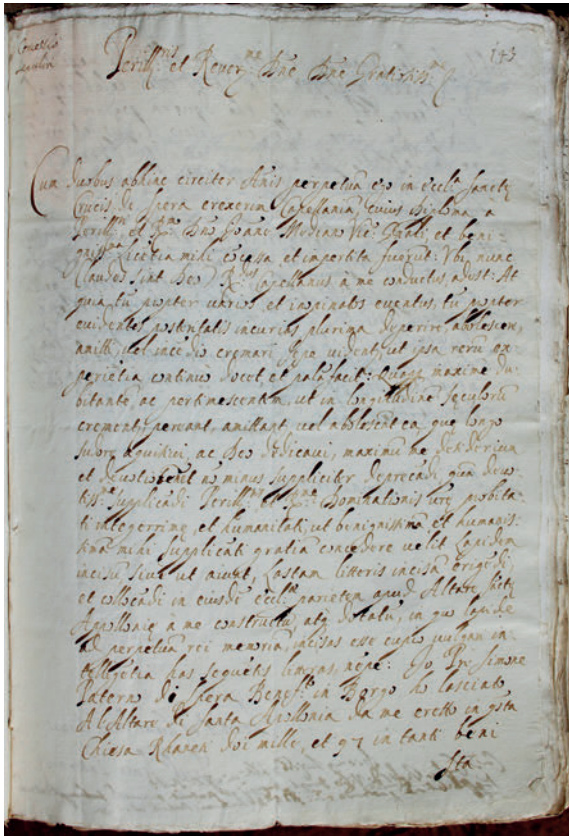 Concessio
143
Perill.ris et Rever.me Dne Dne Gratiosiss.me
Cum duobus abhinc circiter Annis perpetuã ego in Eccl. Sanctę
Crucis de Spera erexerim Capellaniã, cuius Diploma, a
Perill. et R.mo Dno Joanne Modiano Vic. et beni
gniss. licẽtia mihi cõcessa et impertita fuerũt: Ubi nunc
(laudes sint Deo) R.dus Capellanus à me conductus, adest: At
quia, tũ propter varios et inopinatos eventus, tũ propter
evidentes posteritatis incurias plurima deperire, abolescere,
amitti, vel incẽdio cremari sępe vident, ut ipsa rerũ ex-
perietia continuo docet, et palã facit: maxime du
bitante, ac pertimescentem, ut in longitudine sęculorũ
pereant, amittant, vel abolescãt ea, quę longo
sudore aquisivi, ac Deo dedicavi, maximũ me desideriũ
et devotio tenet no minus suppliciter deprecãdi, quã devo-
tiss.e supplicãdi Perill. et R. Dominationis ure probita-
ti integerrime, et humanitati, ut benignissimã et humanis-
simã mihi supplicãti gratiã concedere velit Lapidem
incisũ, sive ut aiunt, Lastam litteris incisã erigẽdi,
et collocãdi in eiusdẽ eccl. parietem apud Altare Sctę
Apollonię à me constructũ, atq dotatũ, in quo lapide
ad perpetuã rei memoriã, incisas esse cupio vulgari in-
telligẽtia has sequẽtes litteras, nẽpe: Io Pr. Simone
Paterno di Spera Benef.to in Borgo ho lasciato
Al'Altare di Santa Apollonia da me eretto in qsta
Chiesa Rhanen doi mille, et 97 in tanti beni
sta